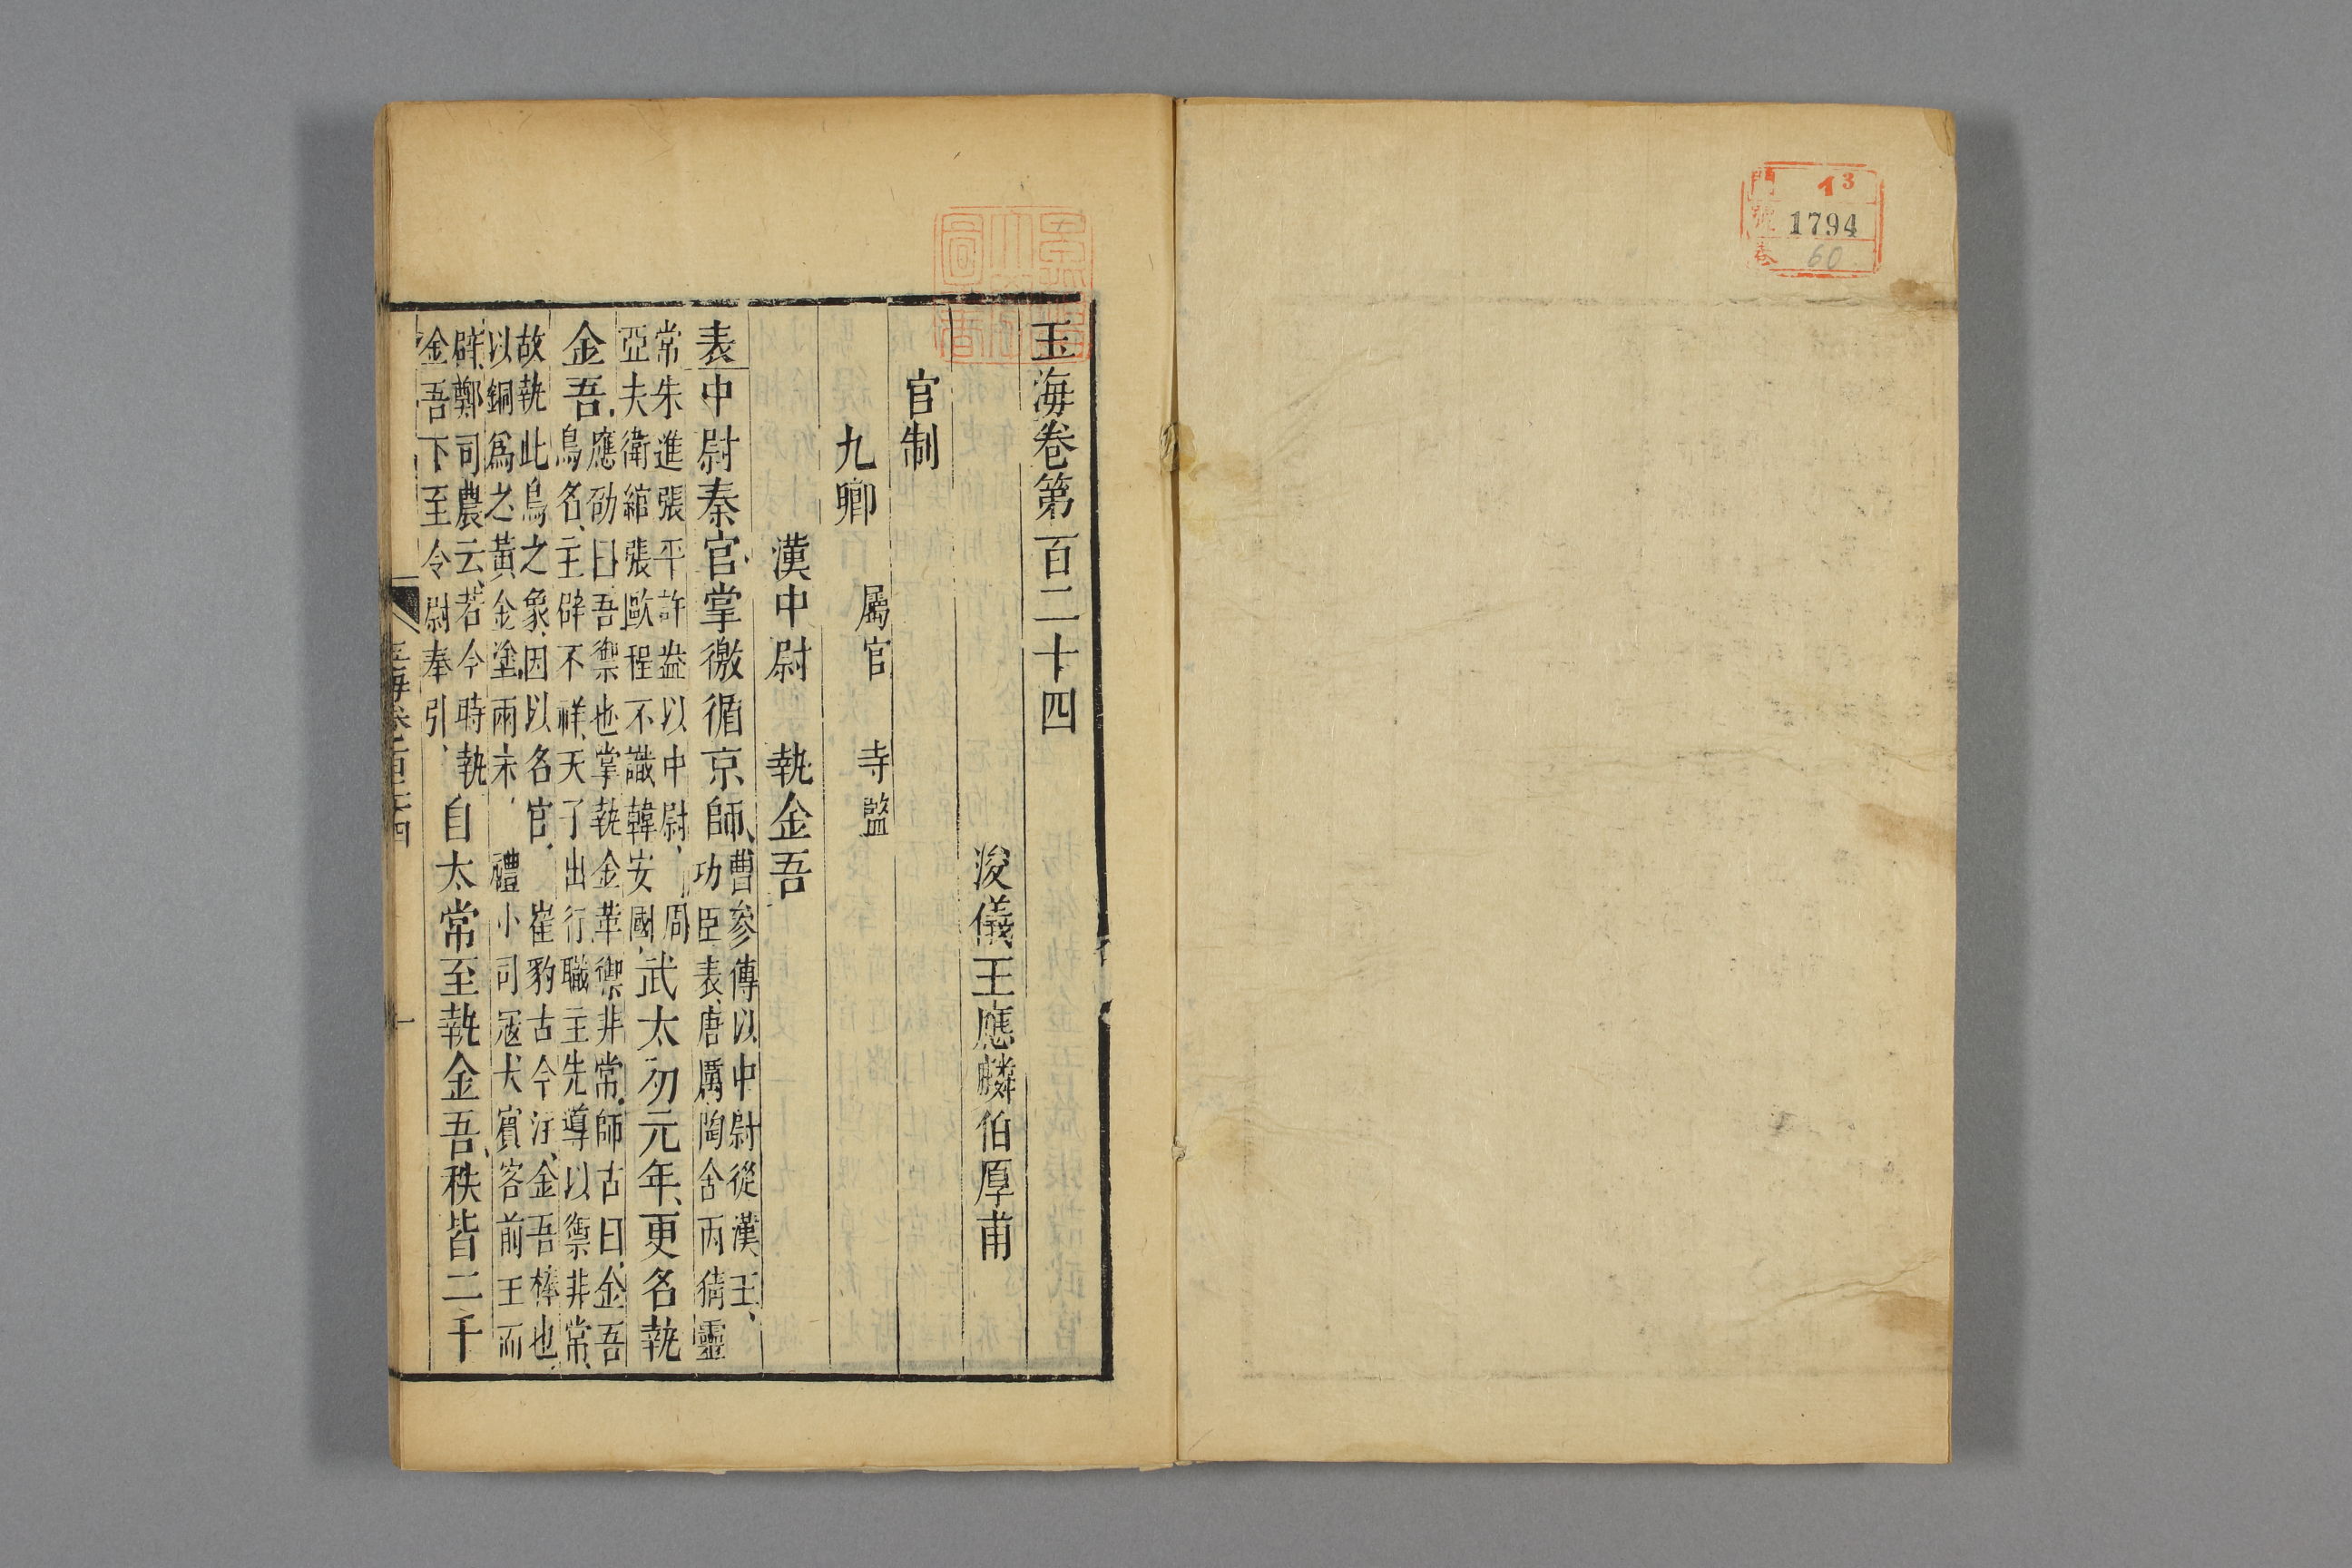 門 13
號 1794
卷 60
玉海卷第百二十四
浚儀王應麟伯厚甫
官制
九卿 屬官 寺監
漢中尉 執金吾
表中尉秦官掌徼循京師、曹參傳以中尉從漢王、
功臣表、唐厲陶舍丙猜靈
常朱進張平許盎以中尉、周
亞夫衛綰張歐程不識韓安國、武太初元年、更名執
金吾、應劭曰、吾禦也掌執金革禦非常、師古曰、金吾
鳥名、主辟不祥、天子出行、職主先導以禦非常、
故執此鳥之象、因以名官、崔豹古今注、金吾、棒也、
以銅為之黃金塗兩末、禮小司寇大賓客前王而
辟、鄭司農云、若今時執
金吾下至令尉奉引、自太常至執金吾、秩皆二千